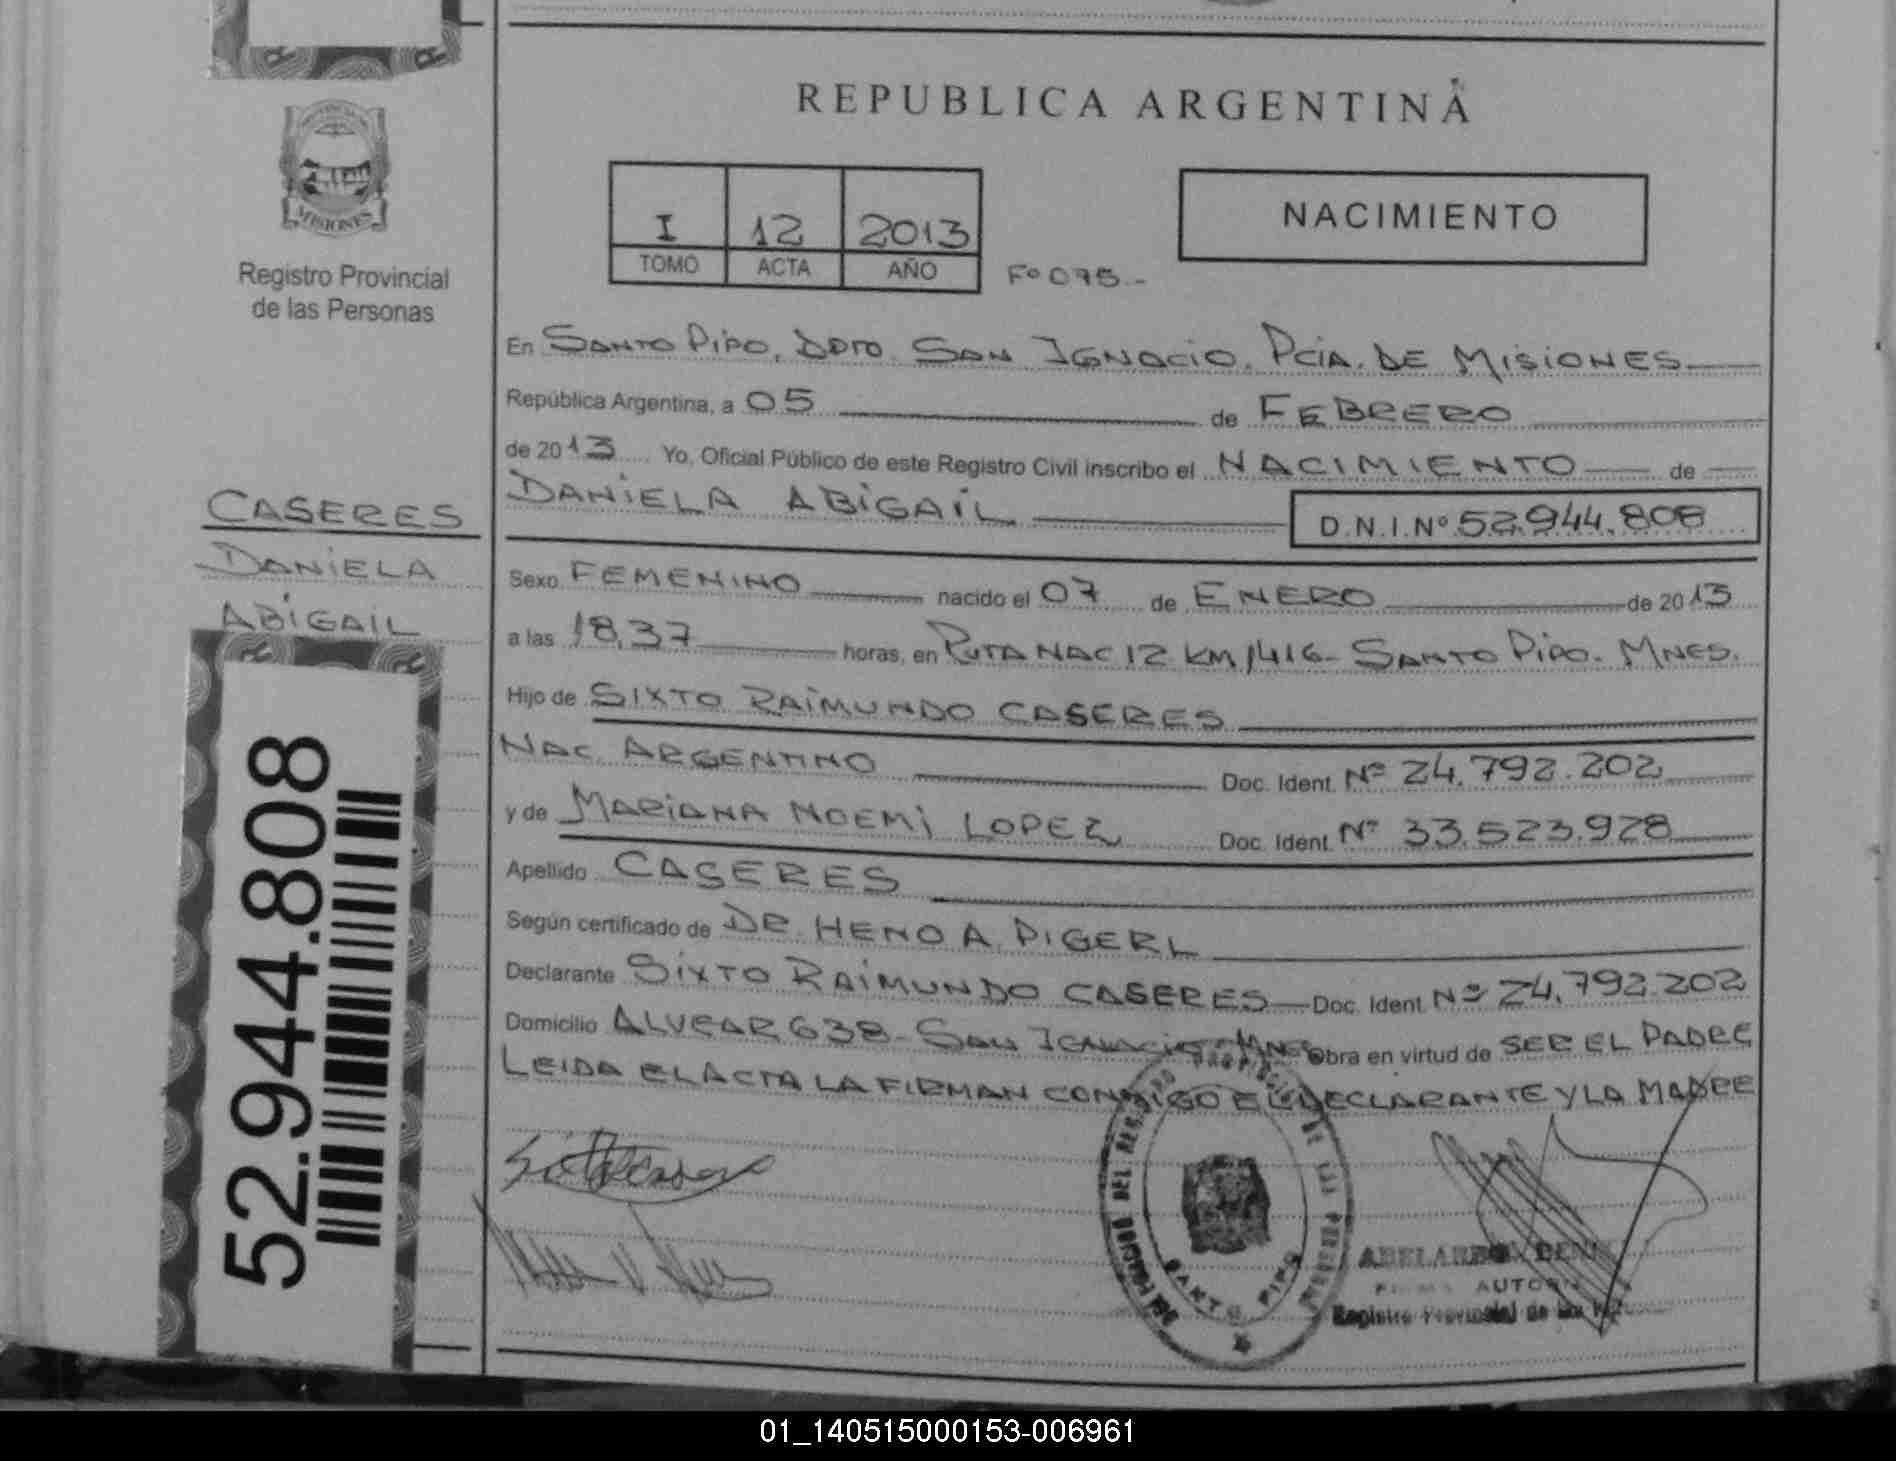 REPUBLICA ARGENTINA
MISIONES
Registro Provincial
de las Personas
I 12 2013
TOMO ACTA AÑO
Fº 075.-
NACIMIENTO
En SANTO PIPO, DPTO SAN IGNACIO, PCIA. DE MISIONES
República Argentina, a 05 de FEBRERO
de 2013 Yo, Oficial Público de este Registro Civil inscribo el NACIMIENTO de
DANIELA ABIGAIL
D.N.I.Nº 52.944.808
CASERES
DANIELA
ABIGAIL
Sexo FEMENINO nacido el 07 de ENERO de 2013
a las 18,37 horas, en RUTA NAC 12 KM 1416- SANTO PIPO. MNES.
Hijo de SIXTO RAIMUNDO CASERES
NAC. ARGENTINO Doc. Ident. Nº 24.792.202
y de MARIANA NOEMI LOPEZ Doc. Ident. Nº 33.523.928
Apellido CASERES
Según certificado de DR. HENO A. PIGERL
Declarante SIXTO RAIMUNDO CASERES Doc. Ident. Nº 24.792.202
Domicilio ALVEAR 638- SAN IGNACIO-MNES Obra en virtud de SER EL PADRE
LEIDA EL ACTA LA FIRMAN CONMIGO EL DECLARANTE Y LA MADRE
52.944.808
DEL REGISTRO PROVINCIAL DE LAS PERSONAS
SANTO PIPO
ABELARDO
FIRMA AUTORI
Registro Provincial de las
01_140515000153-006961